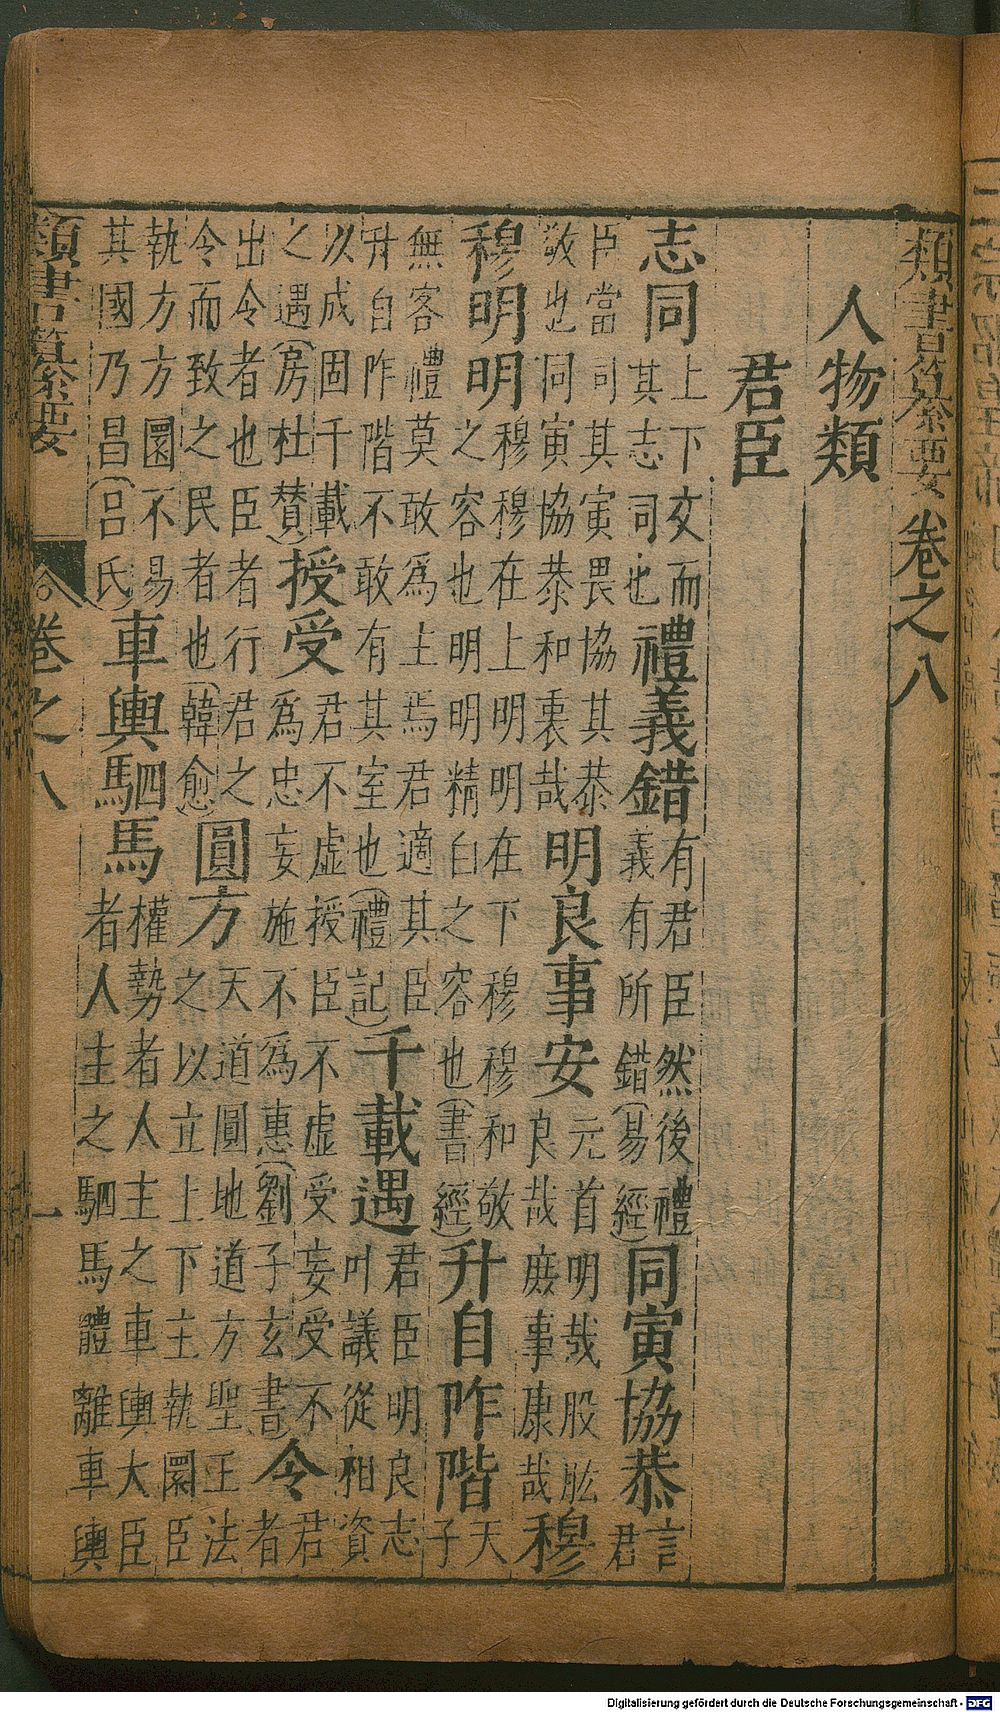 類書纂要卷之八
人物類
君臣
志同上下交而其志司也禮義錯有君臣然後禮義有所錯(易經)同寅協恭言君
臣當司其寅畏協其恭敬也同寅協恭和衷哉明良事安元首明哉股肱良哉庶事康哉穆
穆明明穆穆在上明明在下穆穆和敬之容也明明精白之容也(書經)升自阼階天子
無客禮莫敢爲主焉君適其臣升自阼階不敢有其室也(禮記)千載遇君臣明良志叶議從相資
以成固千載之遇(房杜贊)授受君不虛授臣不虛受妄受不爲忠妄施不爲惠(劉子玄書)令君者
出令者也臣者行君之令而致之民者也(韓愈)圓方天道圓地道方聖王法之以立上下主執圜臣
執方方圜不易其國乃昌(呂氏)車輿駟馬權勢者人主之車輿大臣者人主之駟馬體離車輿
類書纂要 卷之八 一
Digitalisierung gefördert durch die Deutsche Forschungsgemeinschaft - DFG